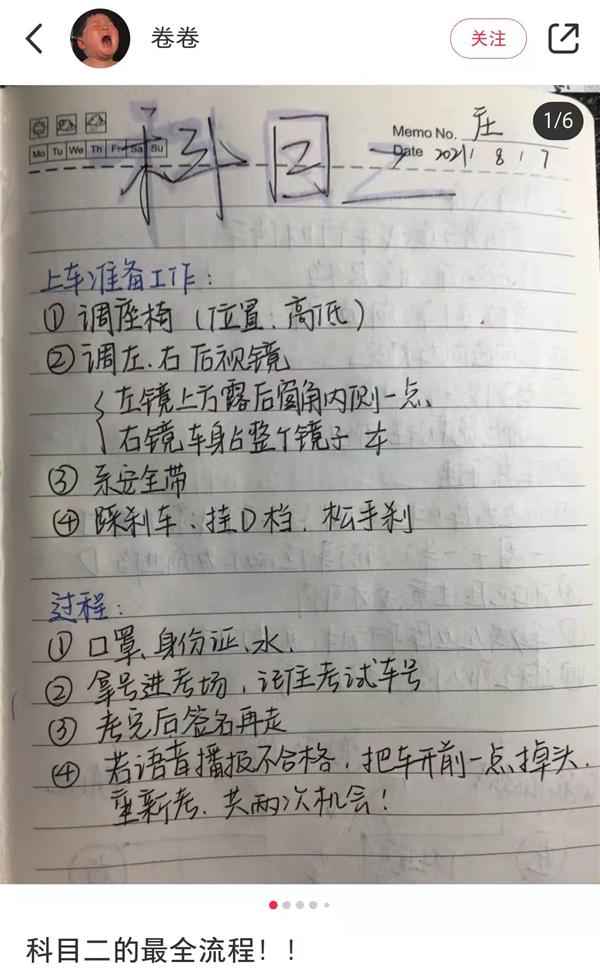 卷卷
关注
1/6
Memo No. 
Mo Tu We Th Fr Sa Su
Date 2021 / 8 / 7
科目二
上车准备工作:
① 调座椅（位置、高低）
② 调左、右后视镜
左镜上方露后窗角内侧一点、
右镜车身占整个镜子
③ 系安全带
④ 踩刹车、挂D档、松手刹
过程:
① 口罩、身份证、水、
② 拿号进考场，记住考试车号
③ 考完后签名再走
④ 若语音播报不合格，把车开前一点、掉头、
重新考、共两次机会！
科目二的最全流程！！